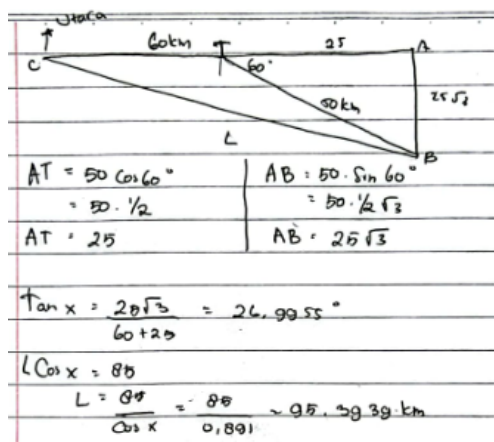 Utara
60km T 25 A
C 60°
50km 25√3
L
B
AT = 50 Cos 60°
= 50 · 1/2
AT = 25
AB = 50 · Sin 60°
= 50 · 1/2 √3
AB = 25√3
Tan x = 25√3 / 60+25 = 26,9955°
L Cos x = 85
L = 85 / Cos x = 85 / 0,891 ~ 95,3939 km